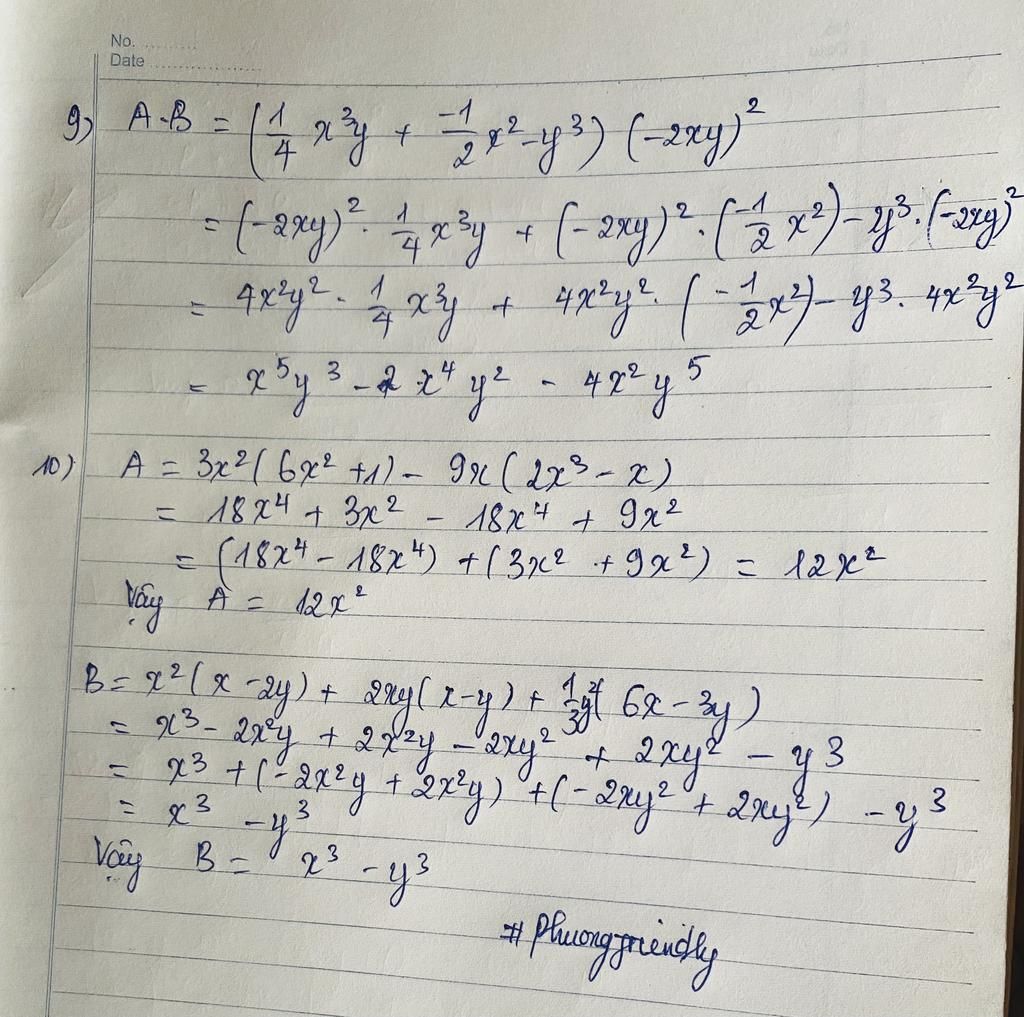 No. ..........
Date ....................
9) A.B = (1/4 x³y + -1/2 x² - y³) (-2xy)²
= (-2xy)² . 1/4 x³y + (-2xy)² . (-1/2 x²) - y³ . (-2xy)²
= 4x²y² . 1/4 x³y + 4x²y² . (-1/2 x²) - y³ . 4x²y²
= x⁵y³ - 2x⁴y² - 4x²y⁵
10) A = 3x²(6x² + 1) - 9x(2x³ - x)
= 18x⁴ + 3x² - 18x⁴ + 9x²
= (18x⁴ - 18x⁴) + (3x² + 9x²) = 12x²
Vậy A = 12x²
B = x²(x - 2y) + 2xy(x - y) + 1/3 y²(6x - 3y)
= x³ - 2x²y + 2x²y - 2xy² + 2xy² - y³
= x³ + (-2x²y + 2x²y) + (-2xy² + 2xy²) - y³
= x³ - y³
Vậy B = x³ - y³
# Phuongfriendly